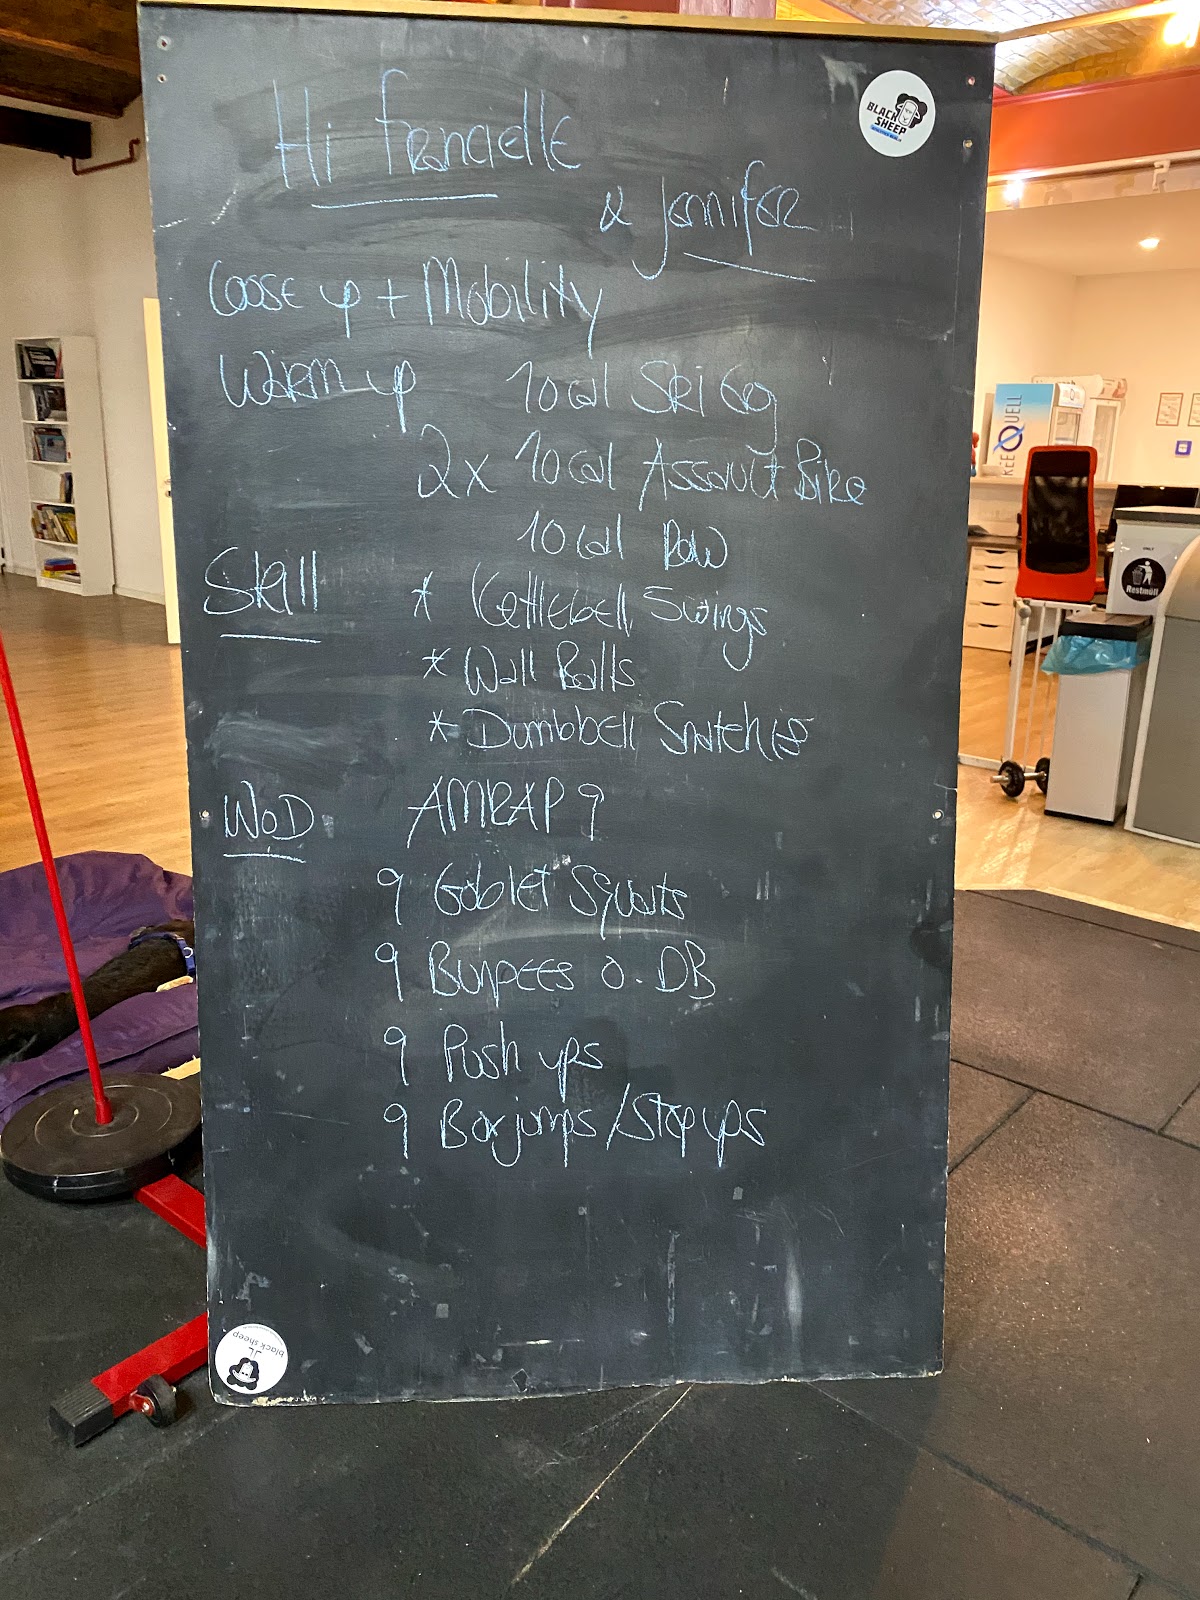 Hi Francielle
& Jennifer
Loose up + Mobility
Warm up 10 cal Ski Erg
2x 10 cal Assault Bike
10 cal Row
Skill * Kettlebell Swings
* Wall Balls
* Dumbbell Snatches
WOD AMRAP 9
9 Goblet Squats
9 Burpees o. DB
9 Push ups
9 Box jumps / Step ups
BLACK
SHEEP
JL
black sheep
QUELL
ONLY
Restmüll